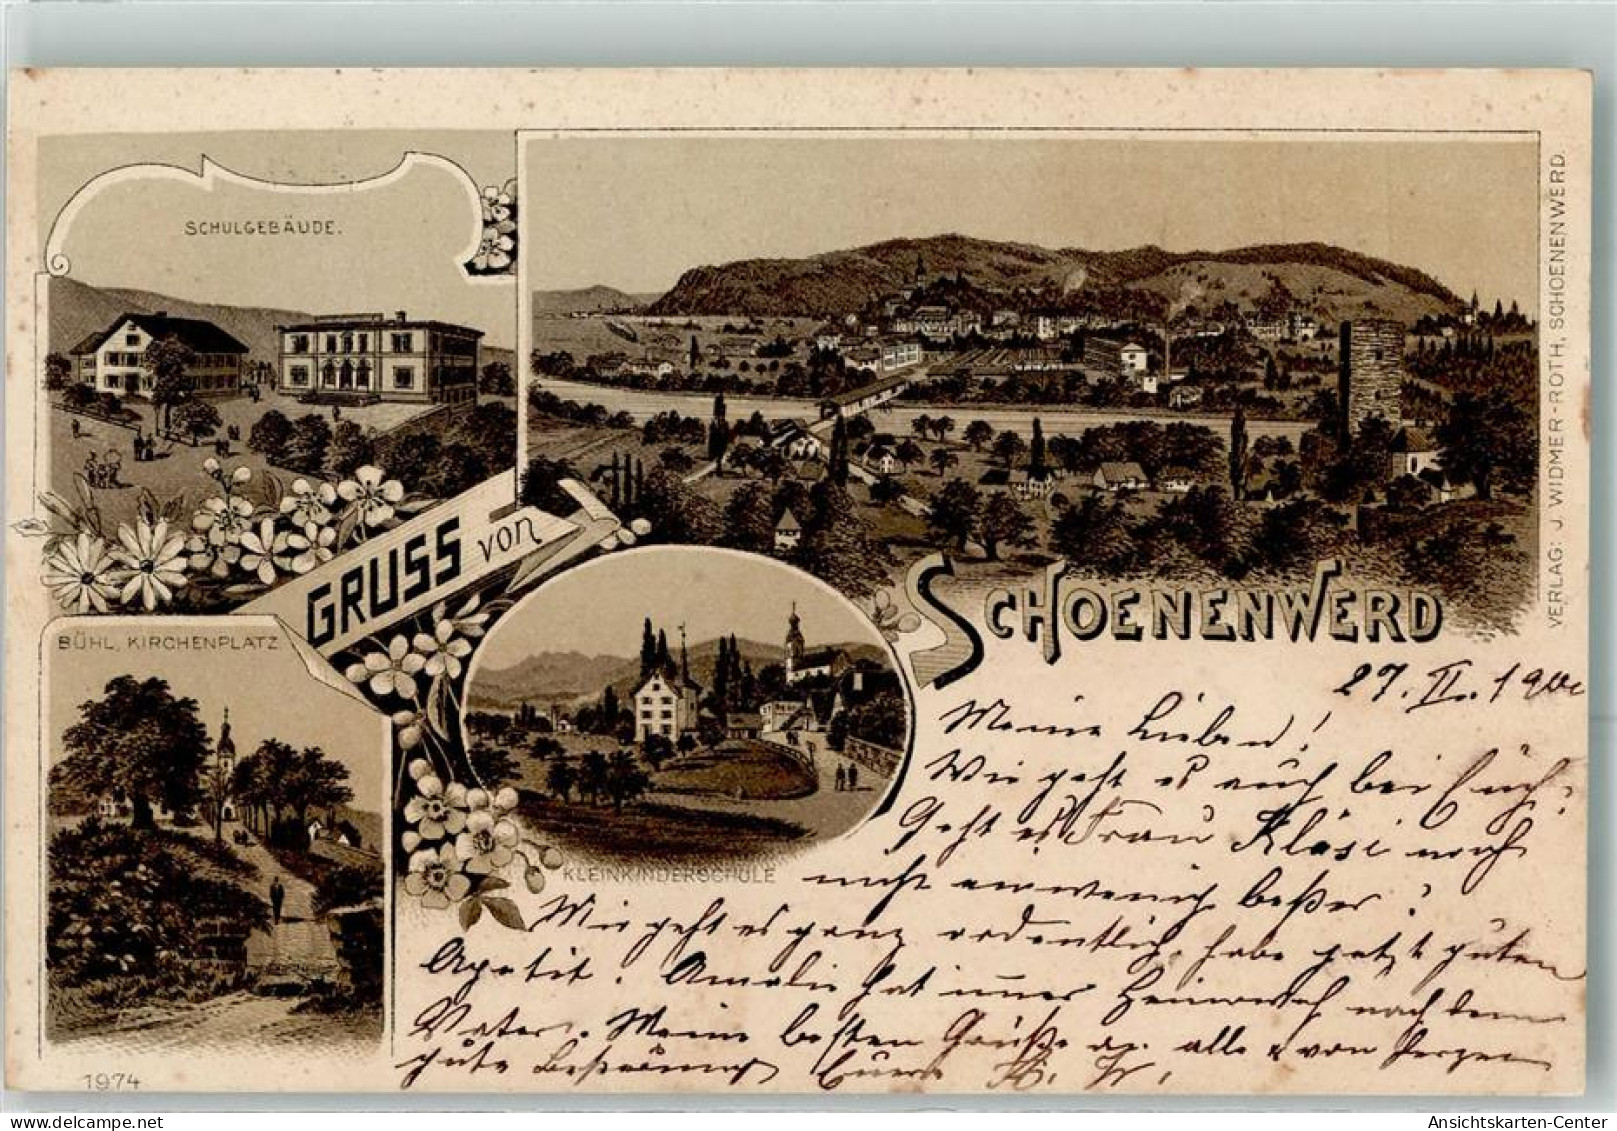 SCHULGEBÄUDE.
GRUSS von
SCHOENENWERD
BÜHL, KIRCHENPLATZ
KLEINKINDERSCHULE
VERLAG: J. WIDMER-ROTH, SCHOENENWERD.
27. II. 1900
Meine Lieben!
Wie geht es euch bei Euch?
Geht es Frau Kläsi noch
nicht ein wenig beßer?
Mir geht es ganz ordentlich, habe jetzt guten
Apetit. Amalie hat immer Heimweh nach dem
Vater. Meine besten Grüße an alle & von Herzen
gute Beßerung Eure
1974
Ansichtskarten-Center